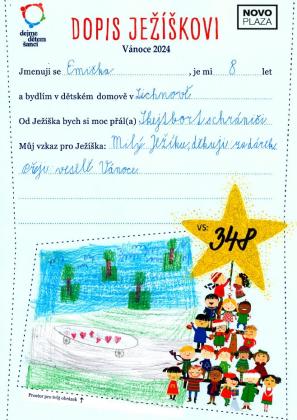 dejme
dětem
šanci
DOPIS JEŽÍŠKOVI
NOVO
PLAZA
Vánoce 2024
Jmenuji se Emička, je mi 8 let
a bydlím v dětském domově v Lichnově
Od Ježíška bych si moc přál(a) Skejtbort schrániči
Můj vzkaz pro Ježíška: Milý Ježíšku, děkuji za dáreček
Přeji veselé Vánoce
VS: 348
Prostor pro tvůj obrázek ↑